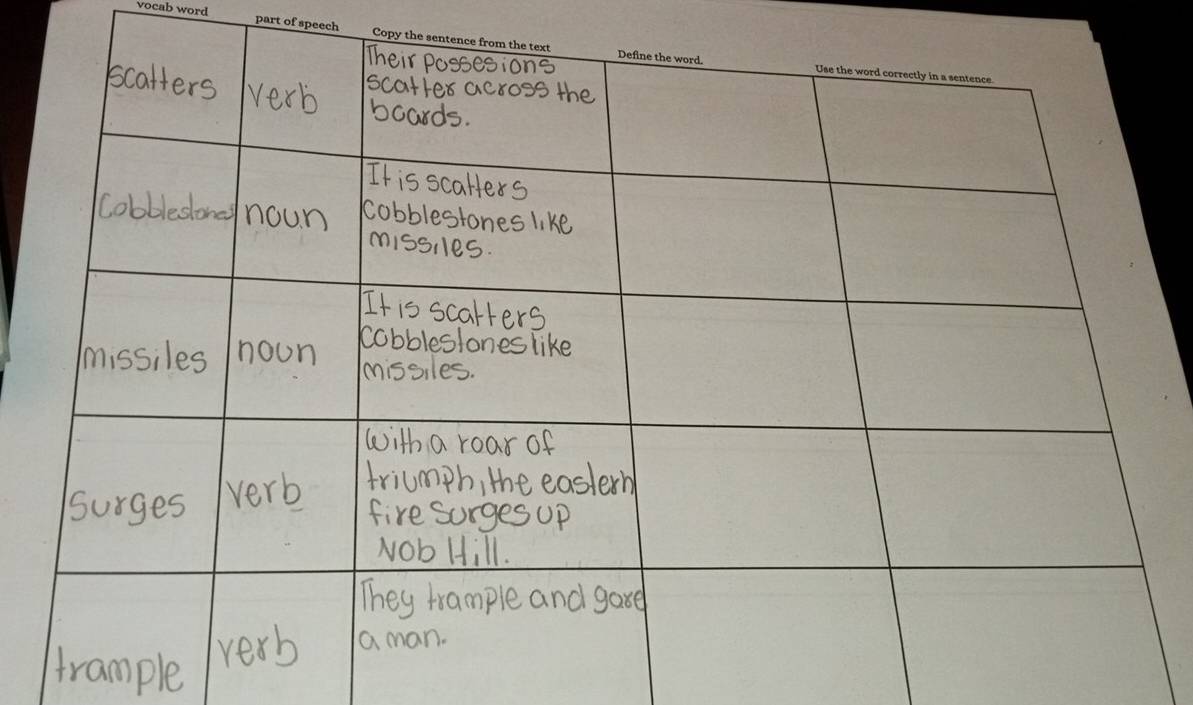 vocab word
part of speech
Copy the sentence from the text
Define the word.
Use the word correctly in a sentence.
scatters
verb
Their possesions
scatter across the
boards.
Cobblestones
noun
It is scatters
cobblestones like
missiles.
missiles
noun
It is scatters
cobblestones like
missiles.
surges
verb
With a roar of
triumph, the eastern
fire surges up
Nob Hill.
trample
verb
They trample and gore
a man.